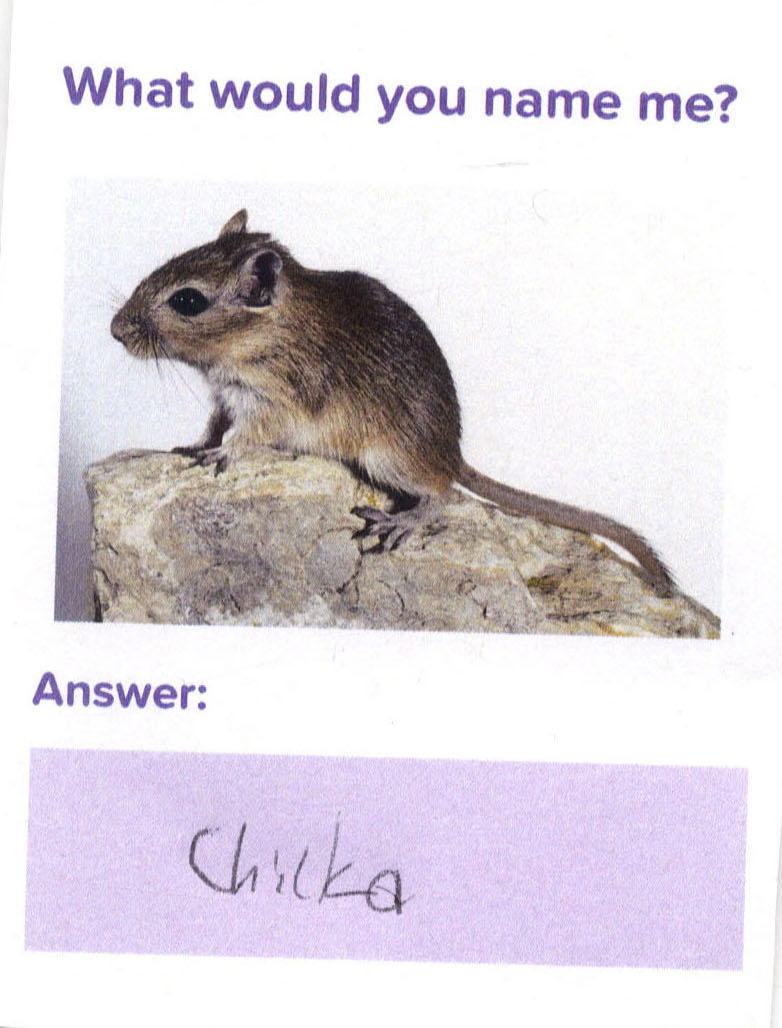 What would you name me?
Answer:
Chicka